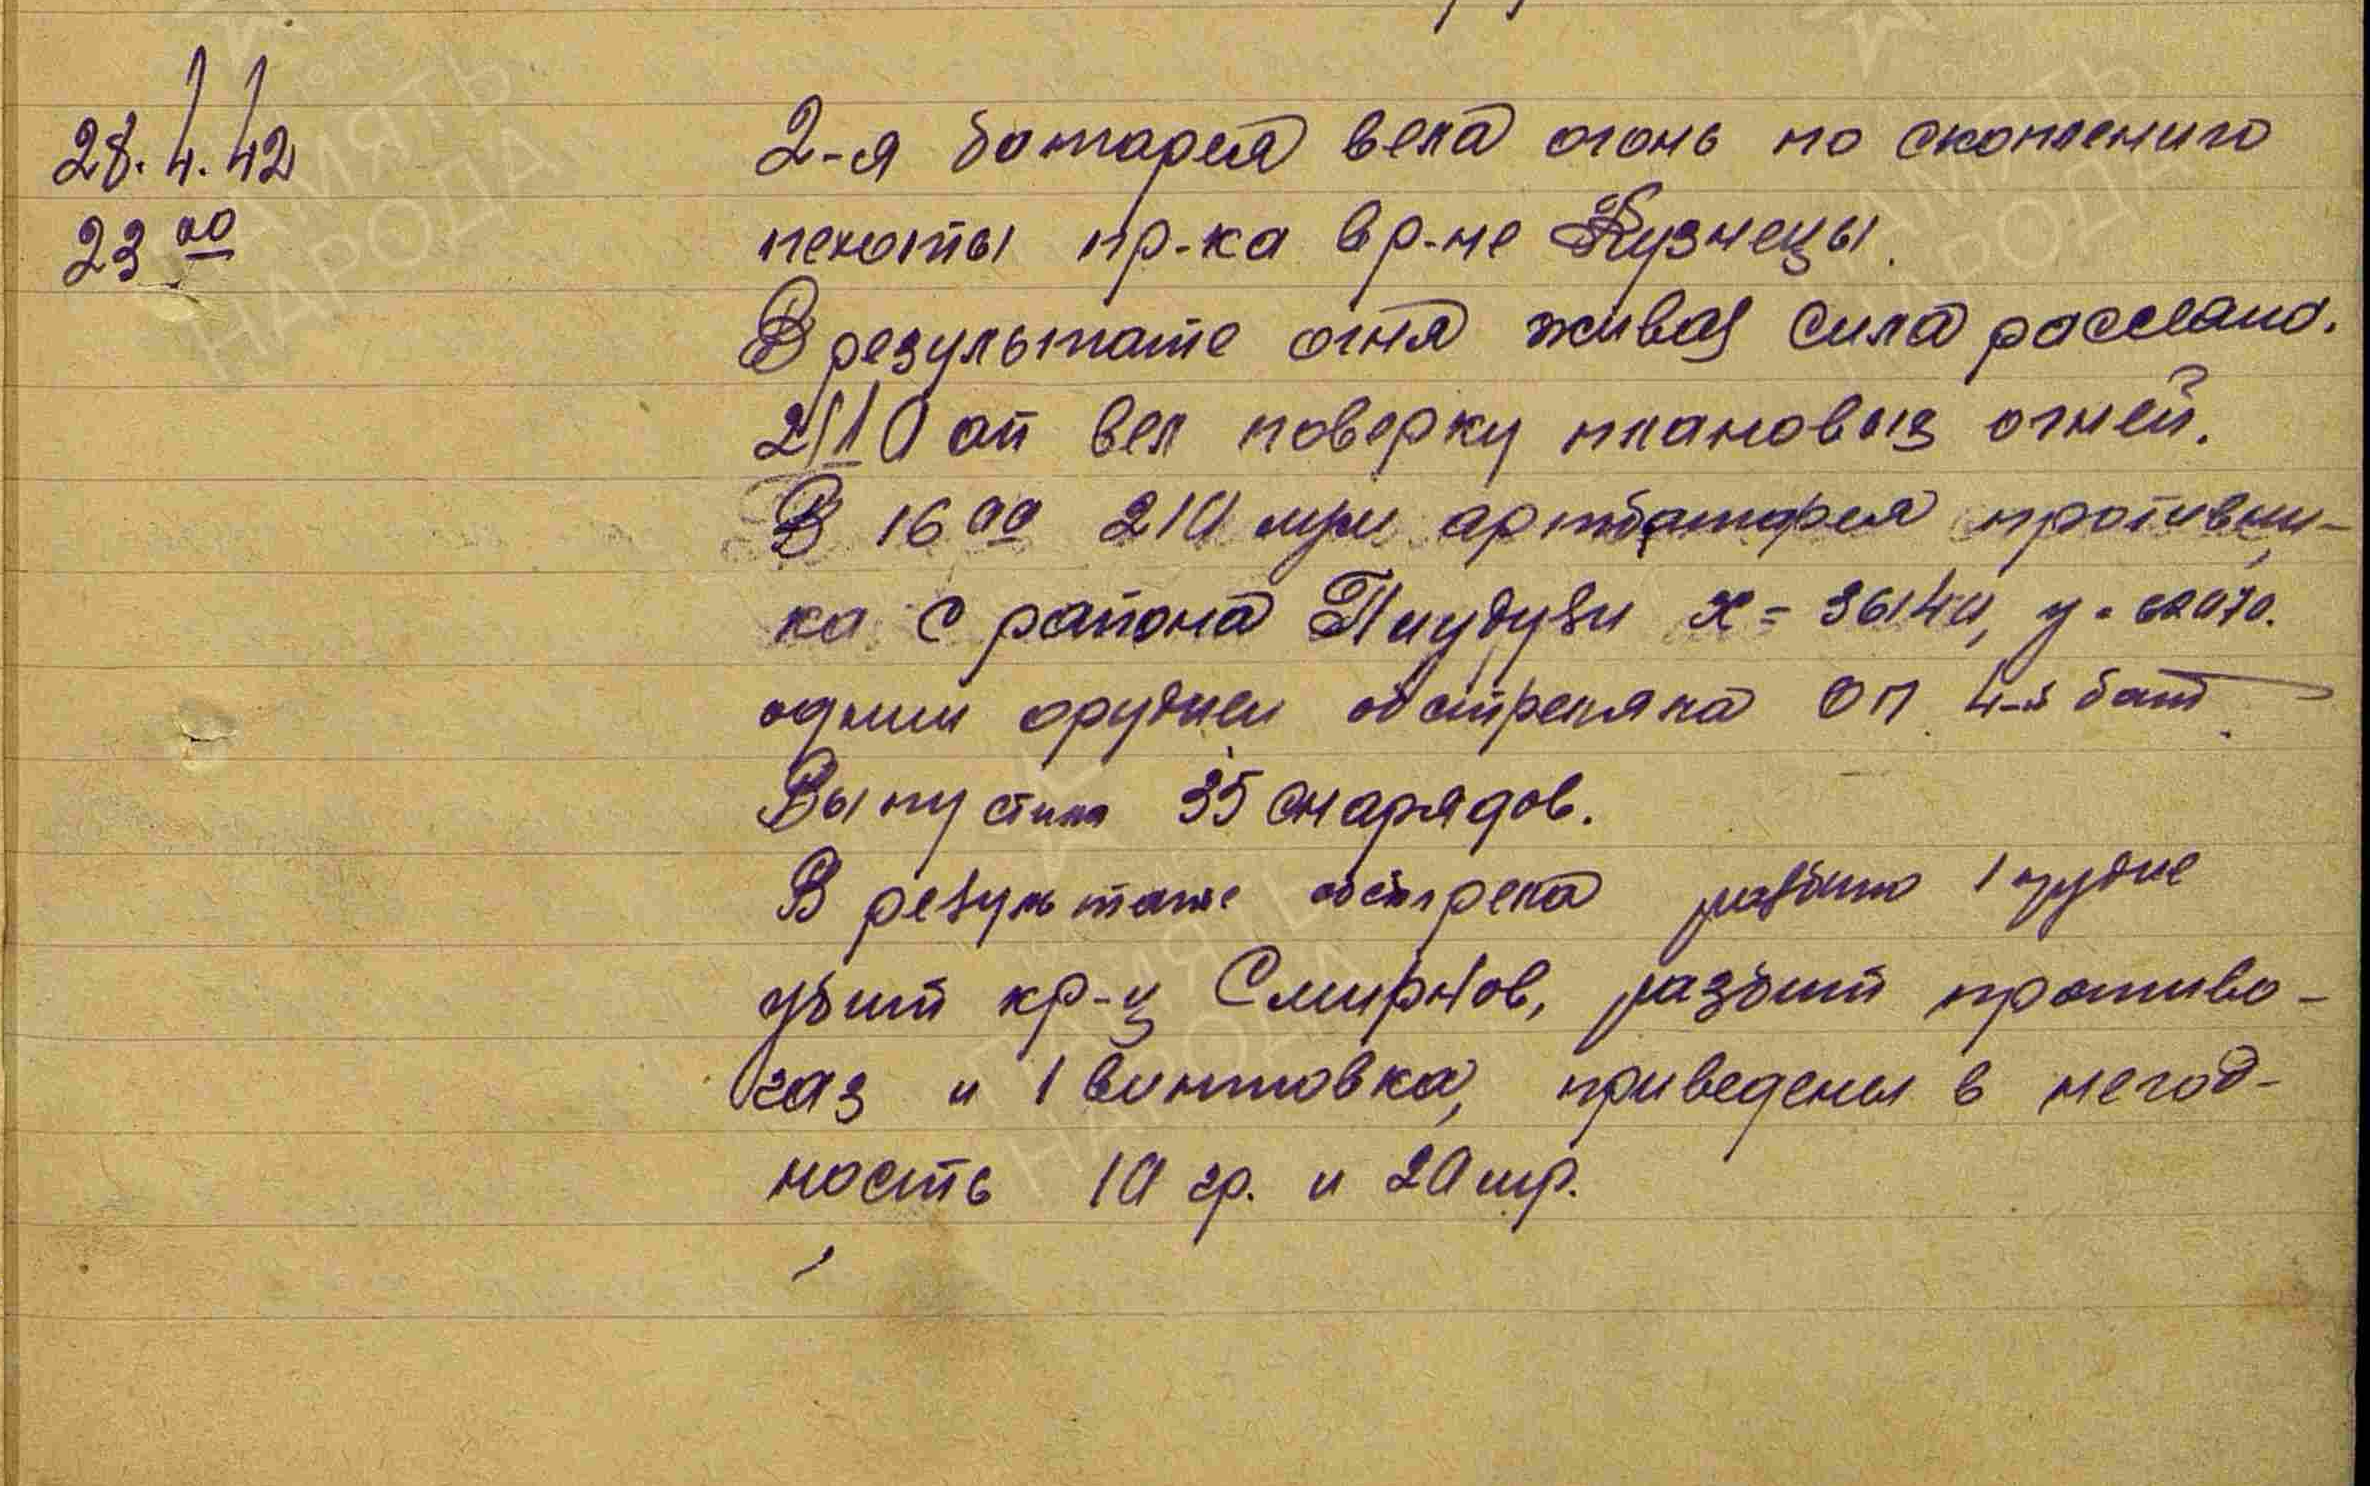 28.4.42
23 00
2-я батарея вела огонь по скоплению
пехоты пр-ка в р-не Кузнецы.
В результате огня живая сила рассеяна.
вел поверку плановых огней.
В 16 00 210 мм артбатарея противни-
ка с района x = 36140, y =
одним орудием обстреляла ОП 4-й бат.
Выпустила 35 снарядов.
В результате обстрела разбито 1 орудие
убит кр-ц Смирнов, разбит противо-
газ и 1 винтовка, приведены в негод-
ность 10 гр. и 20 шр.
ПАМЯТЬ
НАРОДА